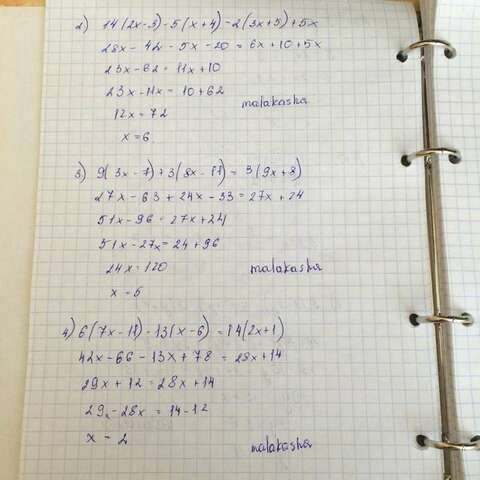 2) 14(2x-3)-5(x+4)-2(3x+5)+5x
28x-42-5x-20=6x+10+5x
23x-62=11x+10
23x-11x=10+62
malakasha
12x=72
x=6
3) 9(3x-7)+3(8x-11)=3(9x+8)
27x-63+24x-33=27x+24
51x-96=27x+24
51x-27x=24+96
24x=120
malakasha
x-5
4) 6(7x-11)-13(x-6)=14(2x+1)
42x-66-13x+78=28x+14
29x+12=28x+14
29x-28x=14-12
x-2
malakasha